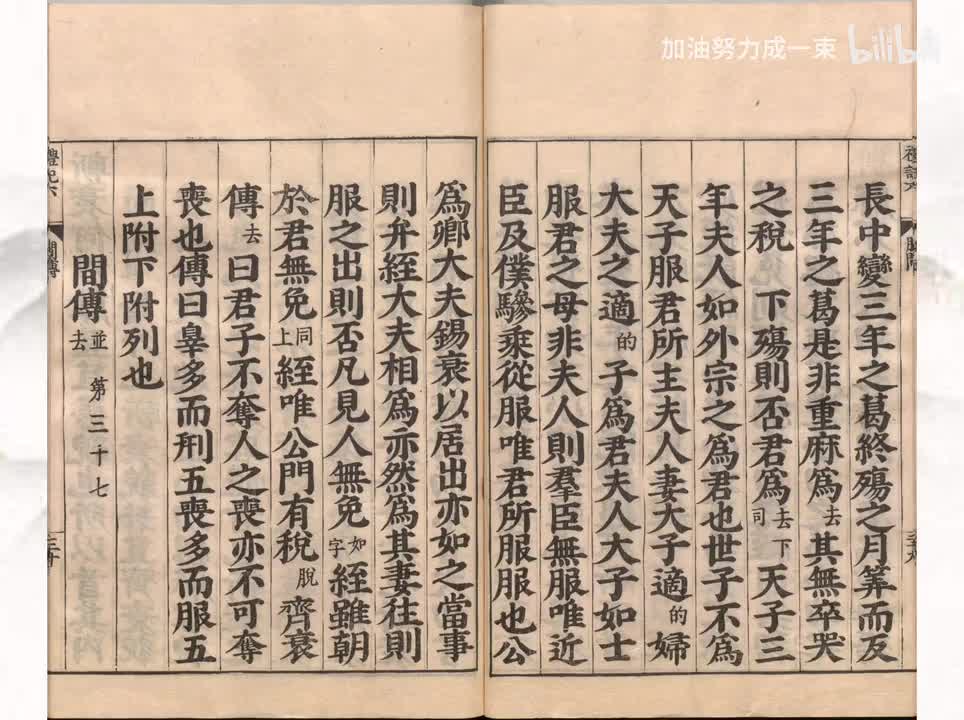 加油努力成一束 bilibili
長中變三年之葛終殤之月筭而反
三年之葛是非重麻爲去其無卒哭
之稅 下殤則否君爲去下司天子三
年夫人如外宗之爲君也世子不爲
天子服君所主夫人妻大子適的婦
大夫之適的子爲君夫人大子如士
服君之母非夫人則羣臣無服唯近
臣及僕驂乘從服唯君所服服也公
爲卿大夫錫衰以居出亦如之當事
則弁絰大夫相爲亦然爲其妻往則
服之出則否凡見人無免如字絰雖朝
於君無免同上絰唯公門有稅脫齊衰
傳去曰君子不奪人之喪亦不可奪
喪也傳曰辠多而刑五喪多而服五
上附下附列也
間傳並去 第三十七
禮記六
間傳